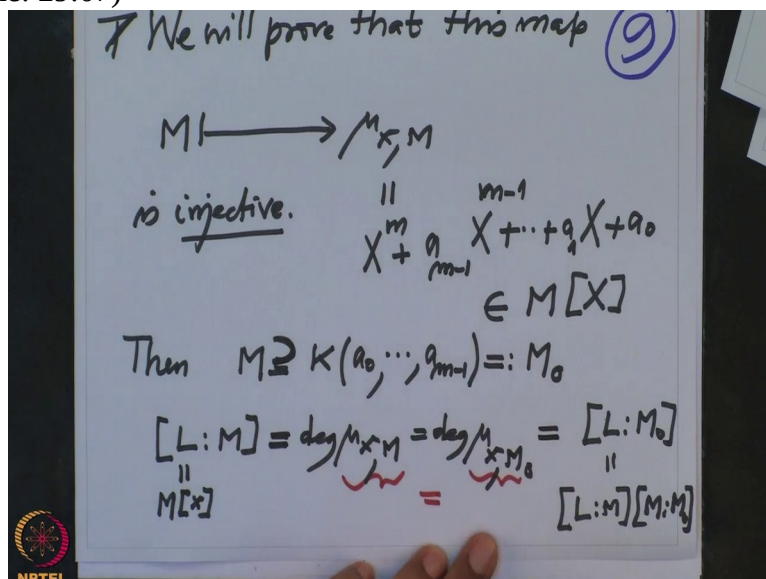 We will prove that this map 9
M ⟼ μ_{x,M}
is injective. ||
X^m + a_{m-1} X^{m-1} + ... + a_1 X + a_0
∈ M[X]
Then M ⊇ K(a_0, ..., a_{m-1}) =: M_0
[L:M] = deg μ_{x,M} = deg μ_{x,M_0} = [L:M_0]
|| = ||
M[x] [L:M][M:M_0]
NPTEL